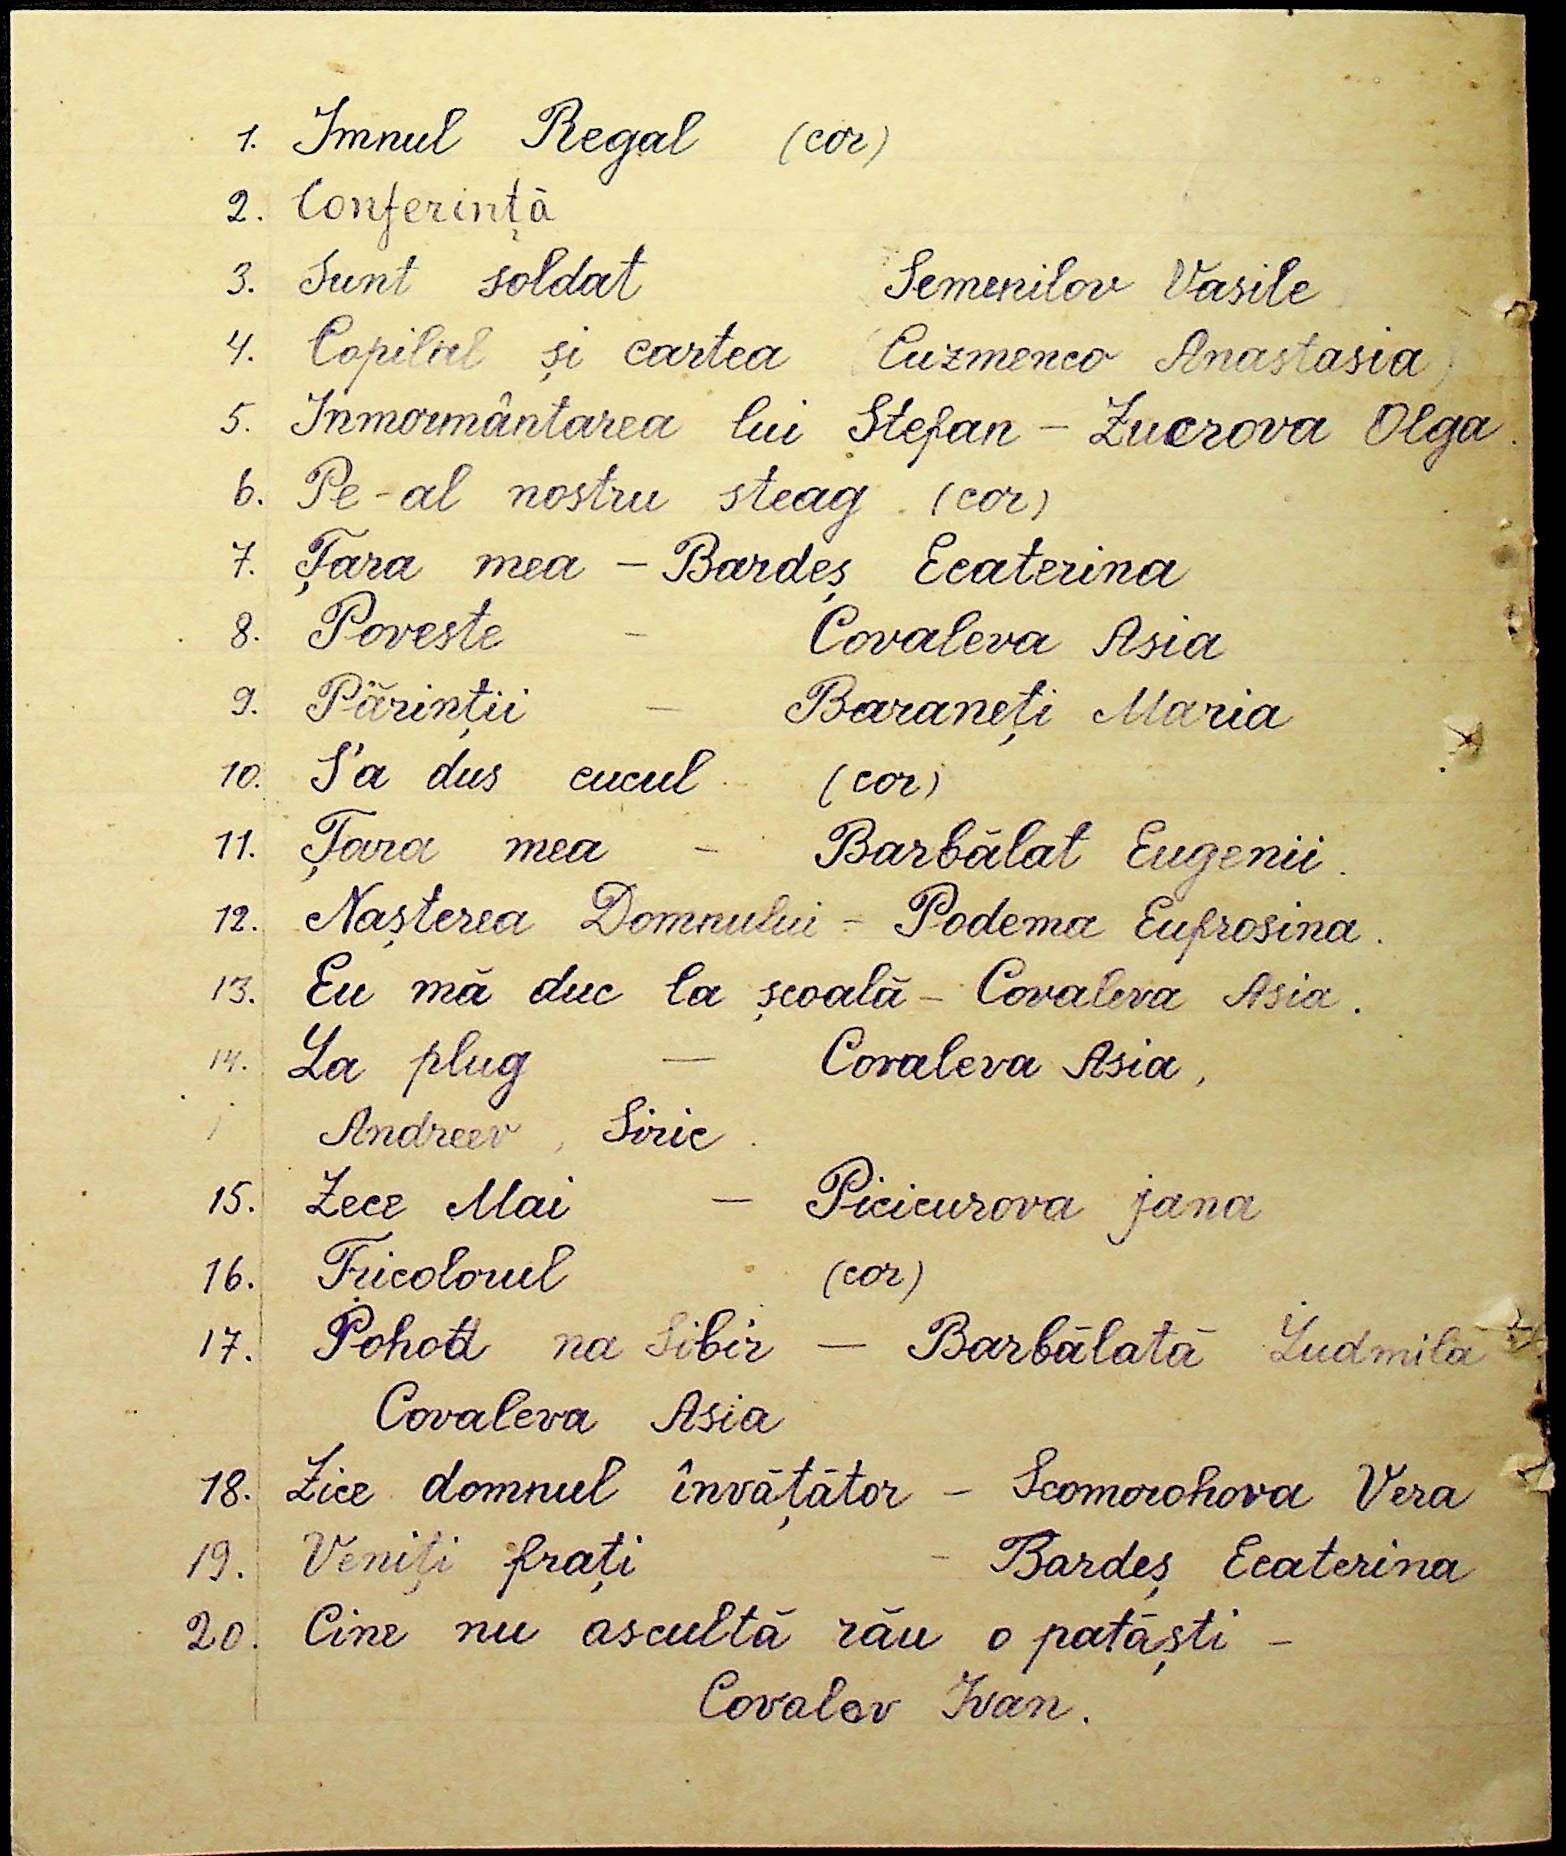 1. Imnul Regal (cor)
2. Conferință
3. Sunt soldat Semenilov Vasile
4. Copilul și cartea (Cuzmenco Anastasia)
5. Inmormântarea lui Ștefan - Zucrova Olga.
6. Pe-al nostru steag. (cor)
7. Țara mea - Bardeș Ecaterina
8. Poveste - Covaleva Asia
9. Părinții - Baraneți Maria
10. S'a dus cucul (cor)
11. Țara mea - Barbălat Eugenii.
12. Nașterea Domnului - Podema Eufrosina.
13. Eu mă duc la școală - Covaleva Asia.
14. La plug - Covaleva Asia,
Andreev, Siric.
15. Zece Mai - Picicurova Jana
16. Tricolorul (cor)
17. Pohod na Sibir - Barbălată Ludmila
Covaleva Asia
18. Zice domnul învățător - Scomorohova Vera
19. Veniți frați - Bardeș Ecaterina
20. Cine nu ascultă rău o patăști -
Covalov Ivan.